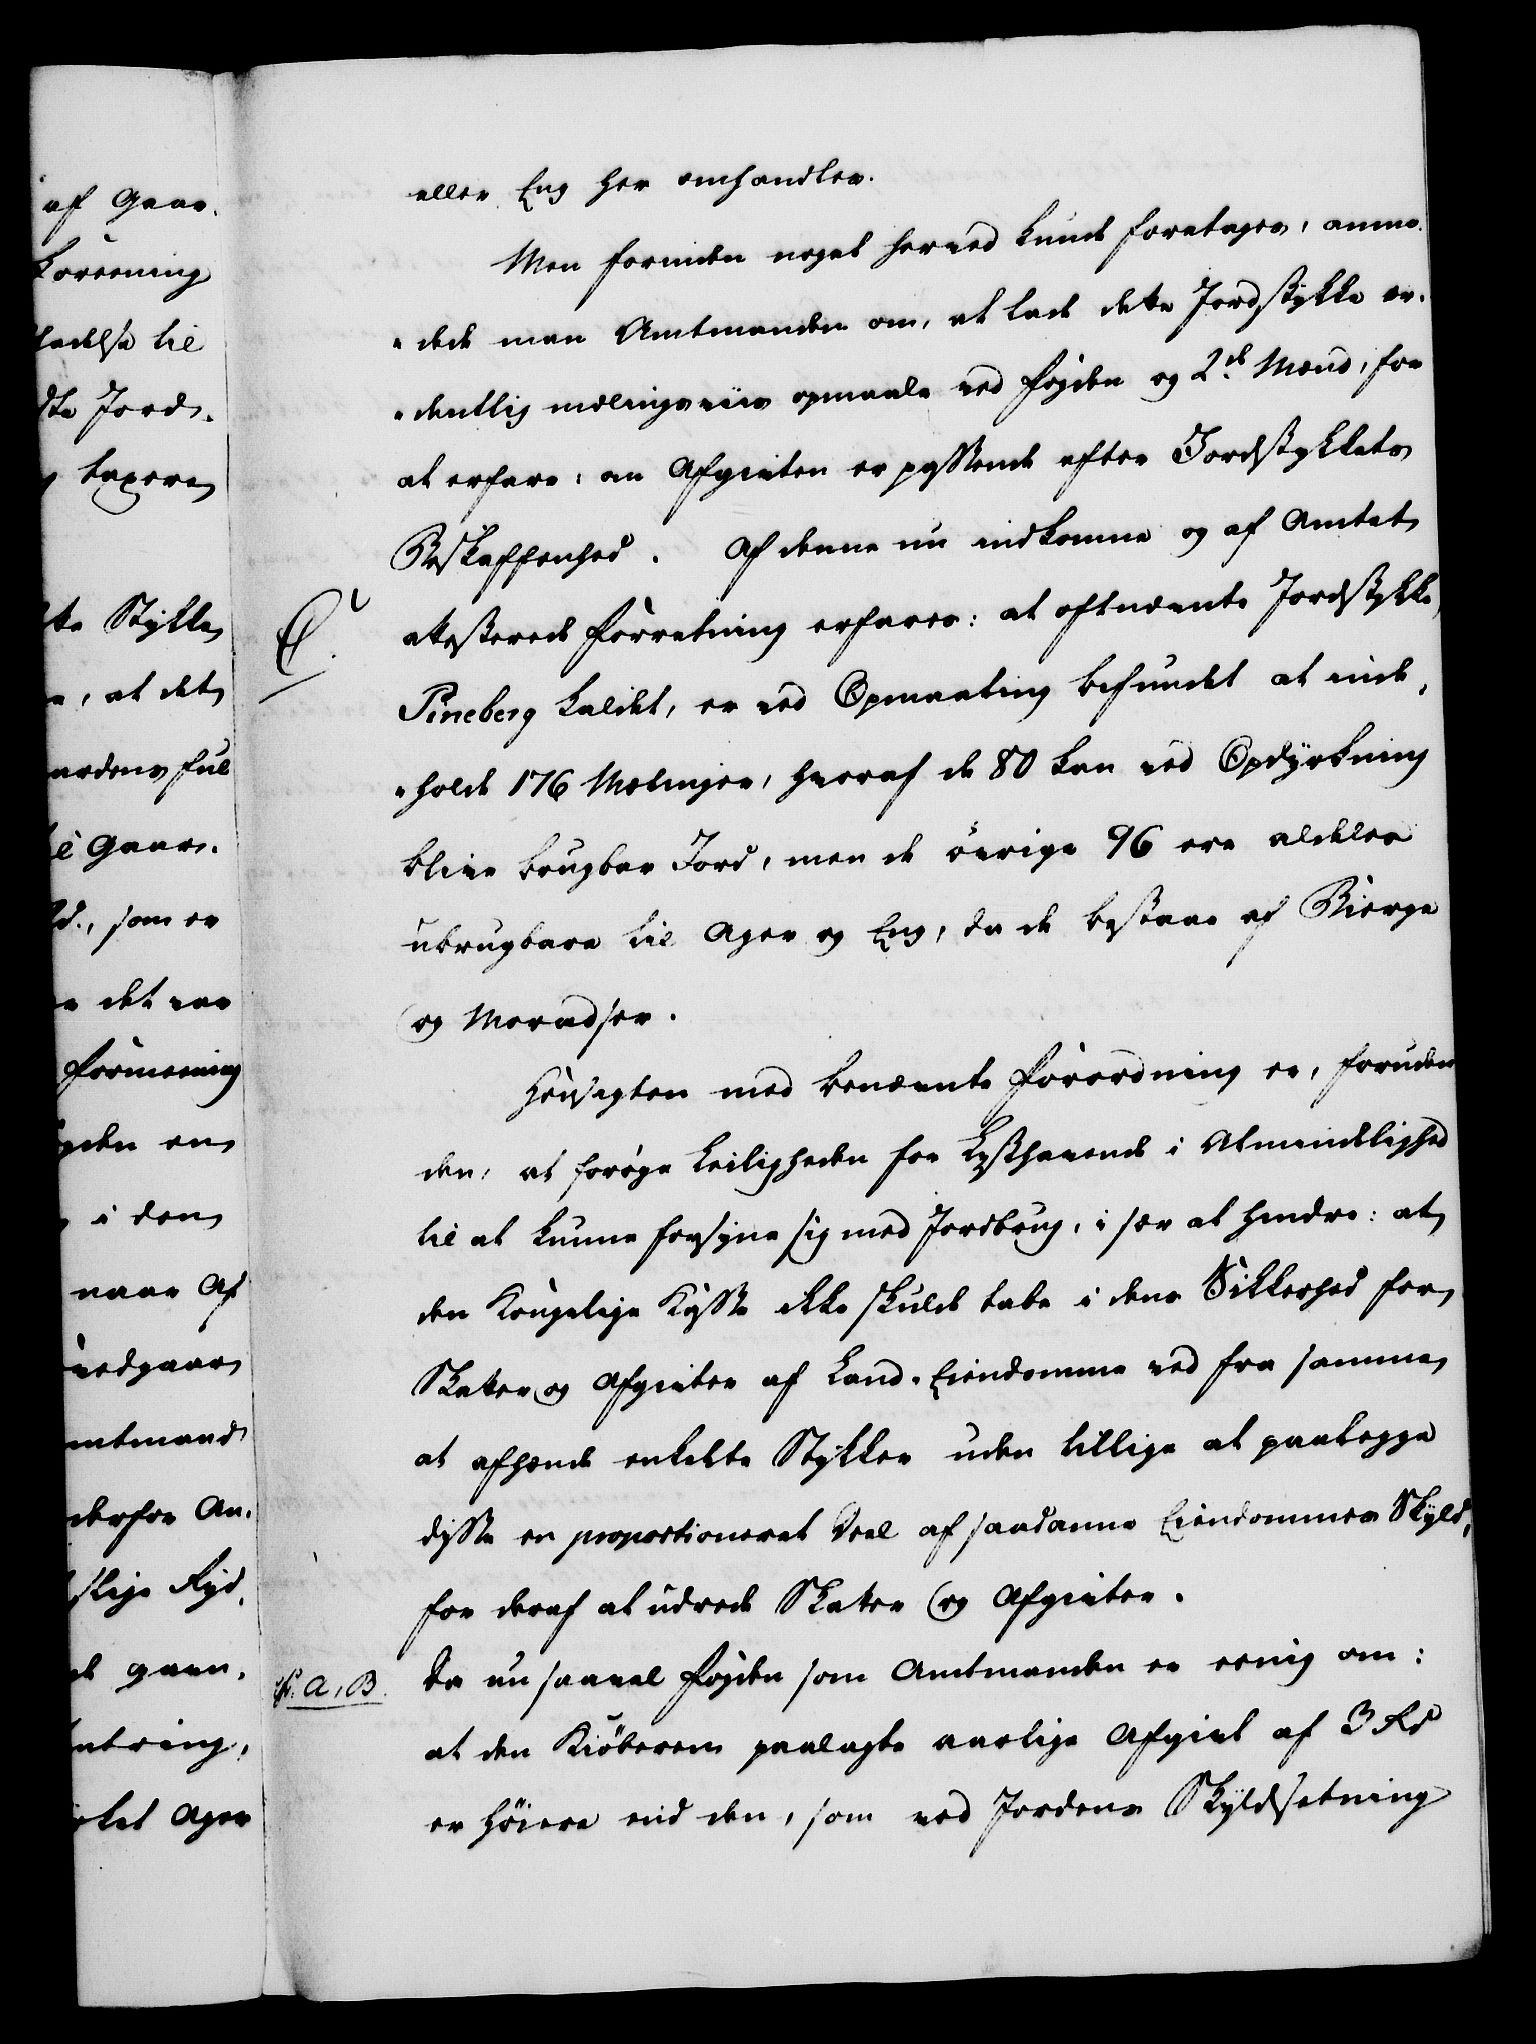 af Gaar-
ladelse til
dte Jord-
taxere
te Stykke
at det
ardens ful
Gaar-
som er
det var
Formeening
en
i den
naar Af
vedgaar
mtmand
derfor An-
Ager
eller Eng her omhandler.
Men forinden noget herved kunde foretages, anmo-
-dede man Amtmanden om, at lade dette Jordstykke or-
-dentlig mælingsviis opmaale ved Fogden og 2de Mænd, for
at erfare: om Afgivten er passende efter Jordstykkets
Beskaffenhed. Af denne nu indkomne og af Amtet
C.
atesterede Forretning erfares: at oftnævnte Jordstykke,
Pineberg kaldet, er ved Opmaaling befundet at inde-
-holde 176 Mælinger, hvoraf de 80 kan ved Opdyrkning
blive brugbar Jord, men de övrige 96 ere aldeles
ubrugbare til Ager og Eng, da de bestaae af Bierge
og Moradser.
Hensigten med benævnte Forordning er, foruden
den, at forøge Leiligheden for Lysthavende i Almindelighed
til at kunne forsyne sig med Jordbrug, i sær at hindre: at
den Kongelige Kasse ikke skulde tabe i dens Sikkerhed for
Skatter og Afgivter af Land-Eiendomme ved fra samme
at afhænde enkelte Stykker uden tillige at paalegge
disse en proportioneret Deel af saadanne Eiendommes Skyld,
for deraf at udrede Skatter og Afgivter.
cfr. A, B.
Da nu saavel Fogden som Amtmanden er eenig om:
at den Kiöberen paalagte aarlige Afgivt af 3 Rd
er höiere end den, som ved Jordens Skyldsætning